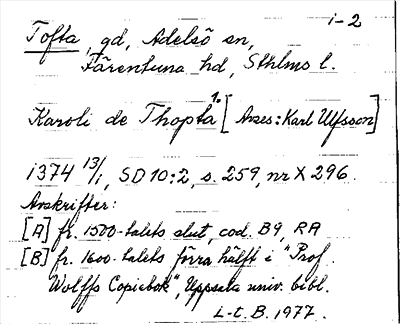 i-2
Tofta, gd, Adelsö sn,
Färentuna hd, Sthlms l.
Karoli de Thopta 1. [Anses: Karl Ulfsson]
1374 13/1, SD 10:2, s. 259, nr X 296.
Avskrifter:
[A] fr. 1500-talets slut, cod. B9, RA
[B] fr. 1600-talets förra hälft i "Prof.
Wolffs Copiebok", Uppsala univ. bibl.
L-t. B. 1977.